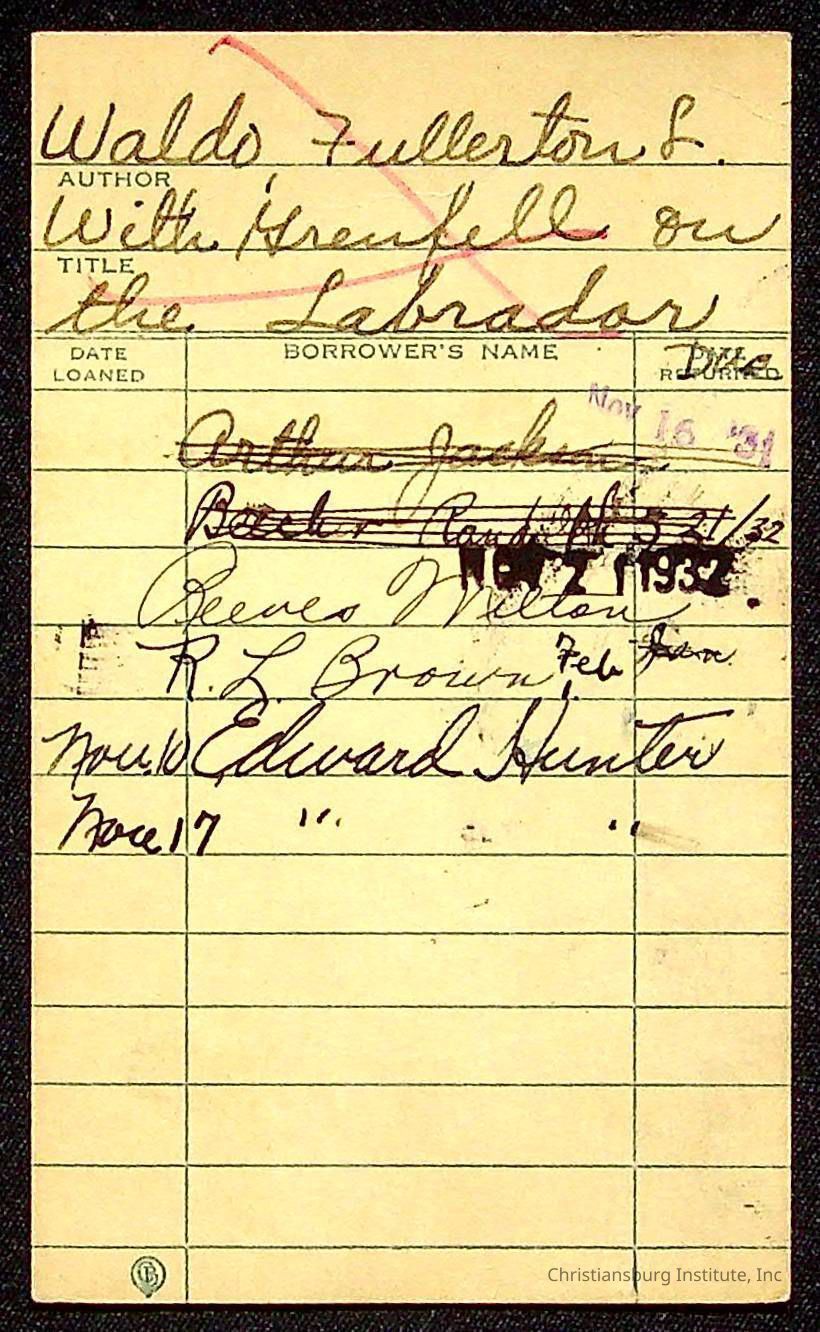 Waldo, Fullerton L.
AUTHOR
With Grenfell on
TITLE
the Labrador
DATE LOANED
BORROWER'S NAME
RETURNED
Due
Nov 16 '31
Arthur Jackson
Randolph 5 21/32
NOV 21 1932
Reeves Milton
R. L. Brown Feb Jan
Nov. 10 Edward Hunter
Nov. 17 " "
Christiansburg Institute, Inc